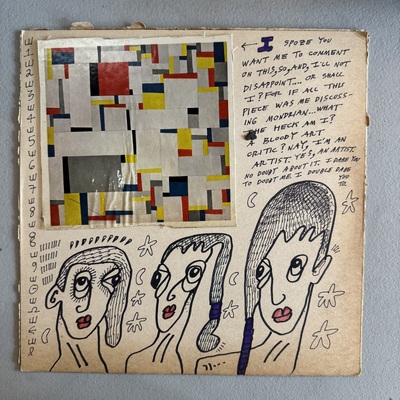 ← I SPOZE YOU
WANT ME TO COMMENT
ON THIS, SO, AND, I'LL NOT
DISAPPOINT.... OR SHALL
I? FOR IF ALL THIS
PIECE WAS ME DISCUSS-
ING MONDRIAN...WHAT
THE HECK AM I?
A BLOODY ART
CRITIC? NAY, I'M AN
ARTIST. YES, AN ARTIST.
NO DOUBT ABOUT IT. I DARE YOU
TO DOUBT ME I DOUBLE DARE
YOU TO.
1
2
3
4
5
6
7
8
8
9